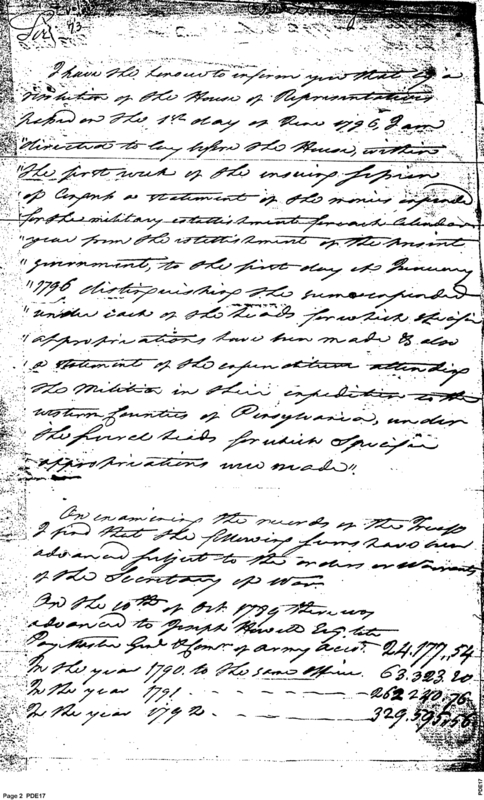 Sir,
73
I have the honour to inform you that by a
resolution of the House of Representatives
passed on the 1st day of June 1796, I am
"directed to lay before the House, within
"the first week of the insuing Session
of Congress a statement of the monies expended
for the military establishment for each Calendar
year from the establishment of the present
government, to the first day of January
"1796 distinguishing the sums expended
under each of the heads for which specific
appropriations have been made & also
a statement of the expenditures attending
the Militia in their expedition to the
western Counties of Pensylvania, under
the several heads for which Specific
appropriations were made".
On examining the records of the Treasy
I find that the following sums have been
advanced subject to the orders or Warrants
of the Secretary of War.
On the 10th of Oct. 1789 there was
advanced to Joseph Howell Esq. late
Pay Master Genl & Comr of Army Accts. 24,177,,54
In the year 1790. to the same Officer. 63,323.20
In the year 1791. - - - - - - 262,240,76
In the year 1792. - - - - - - 329,595,56
Page 2 PDE17
PDE17